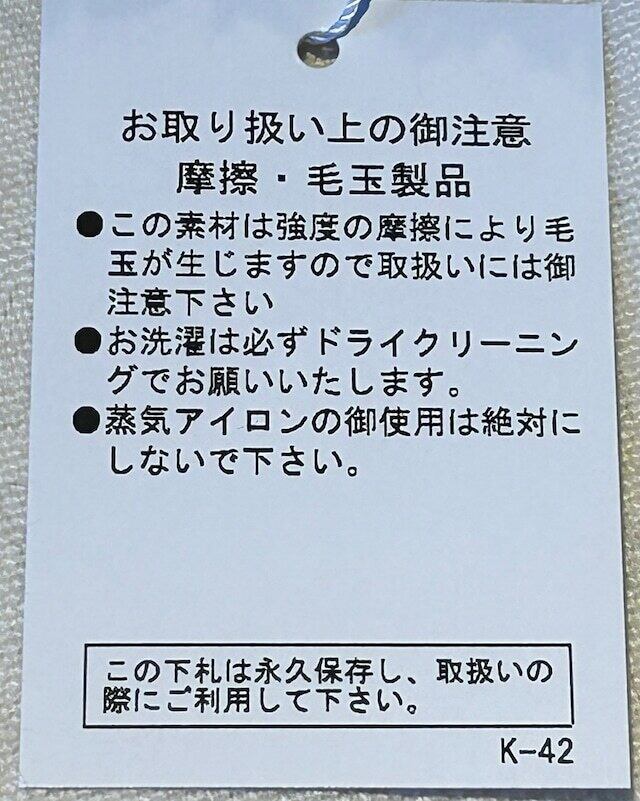 お取り扱い上の御注意
摩擦・毛玉製品
●この素材は強度の摩擦により毛
玉が生じますので取扱いには御
注意下さい
●お洗濯は必ずドライクリーニン
グでお願いいたします。
●蒸気アイロンの御使用は絶対に
しないで下さい。
この下札は永久保存し、取扱いの
際にご利用して下さい。
K-42